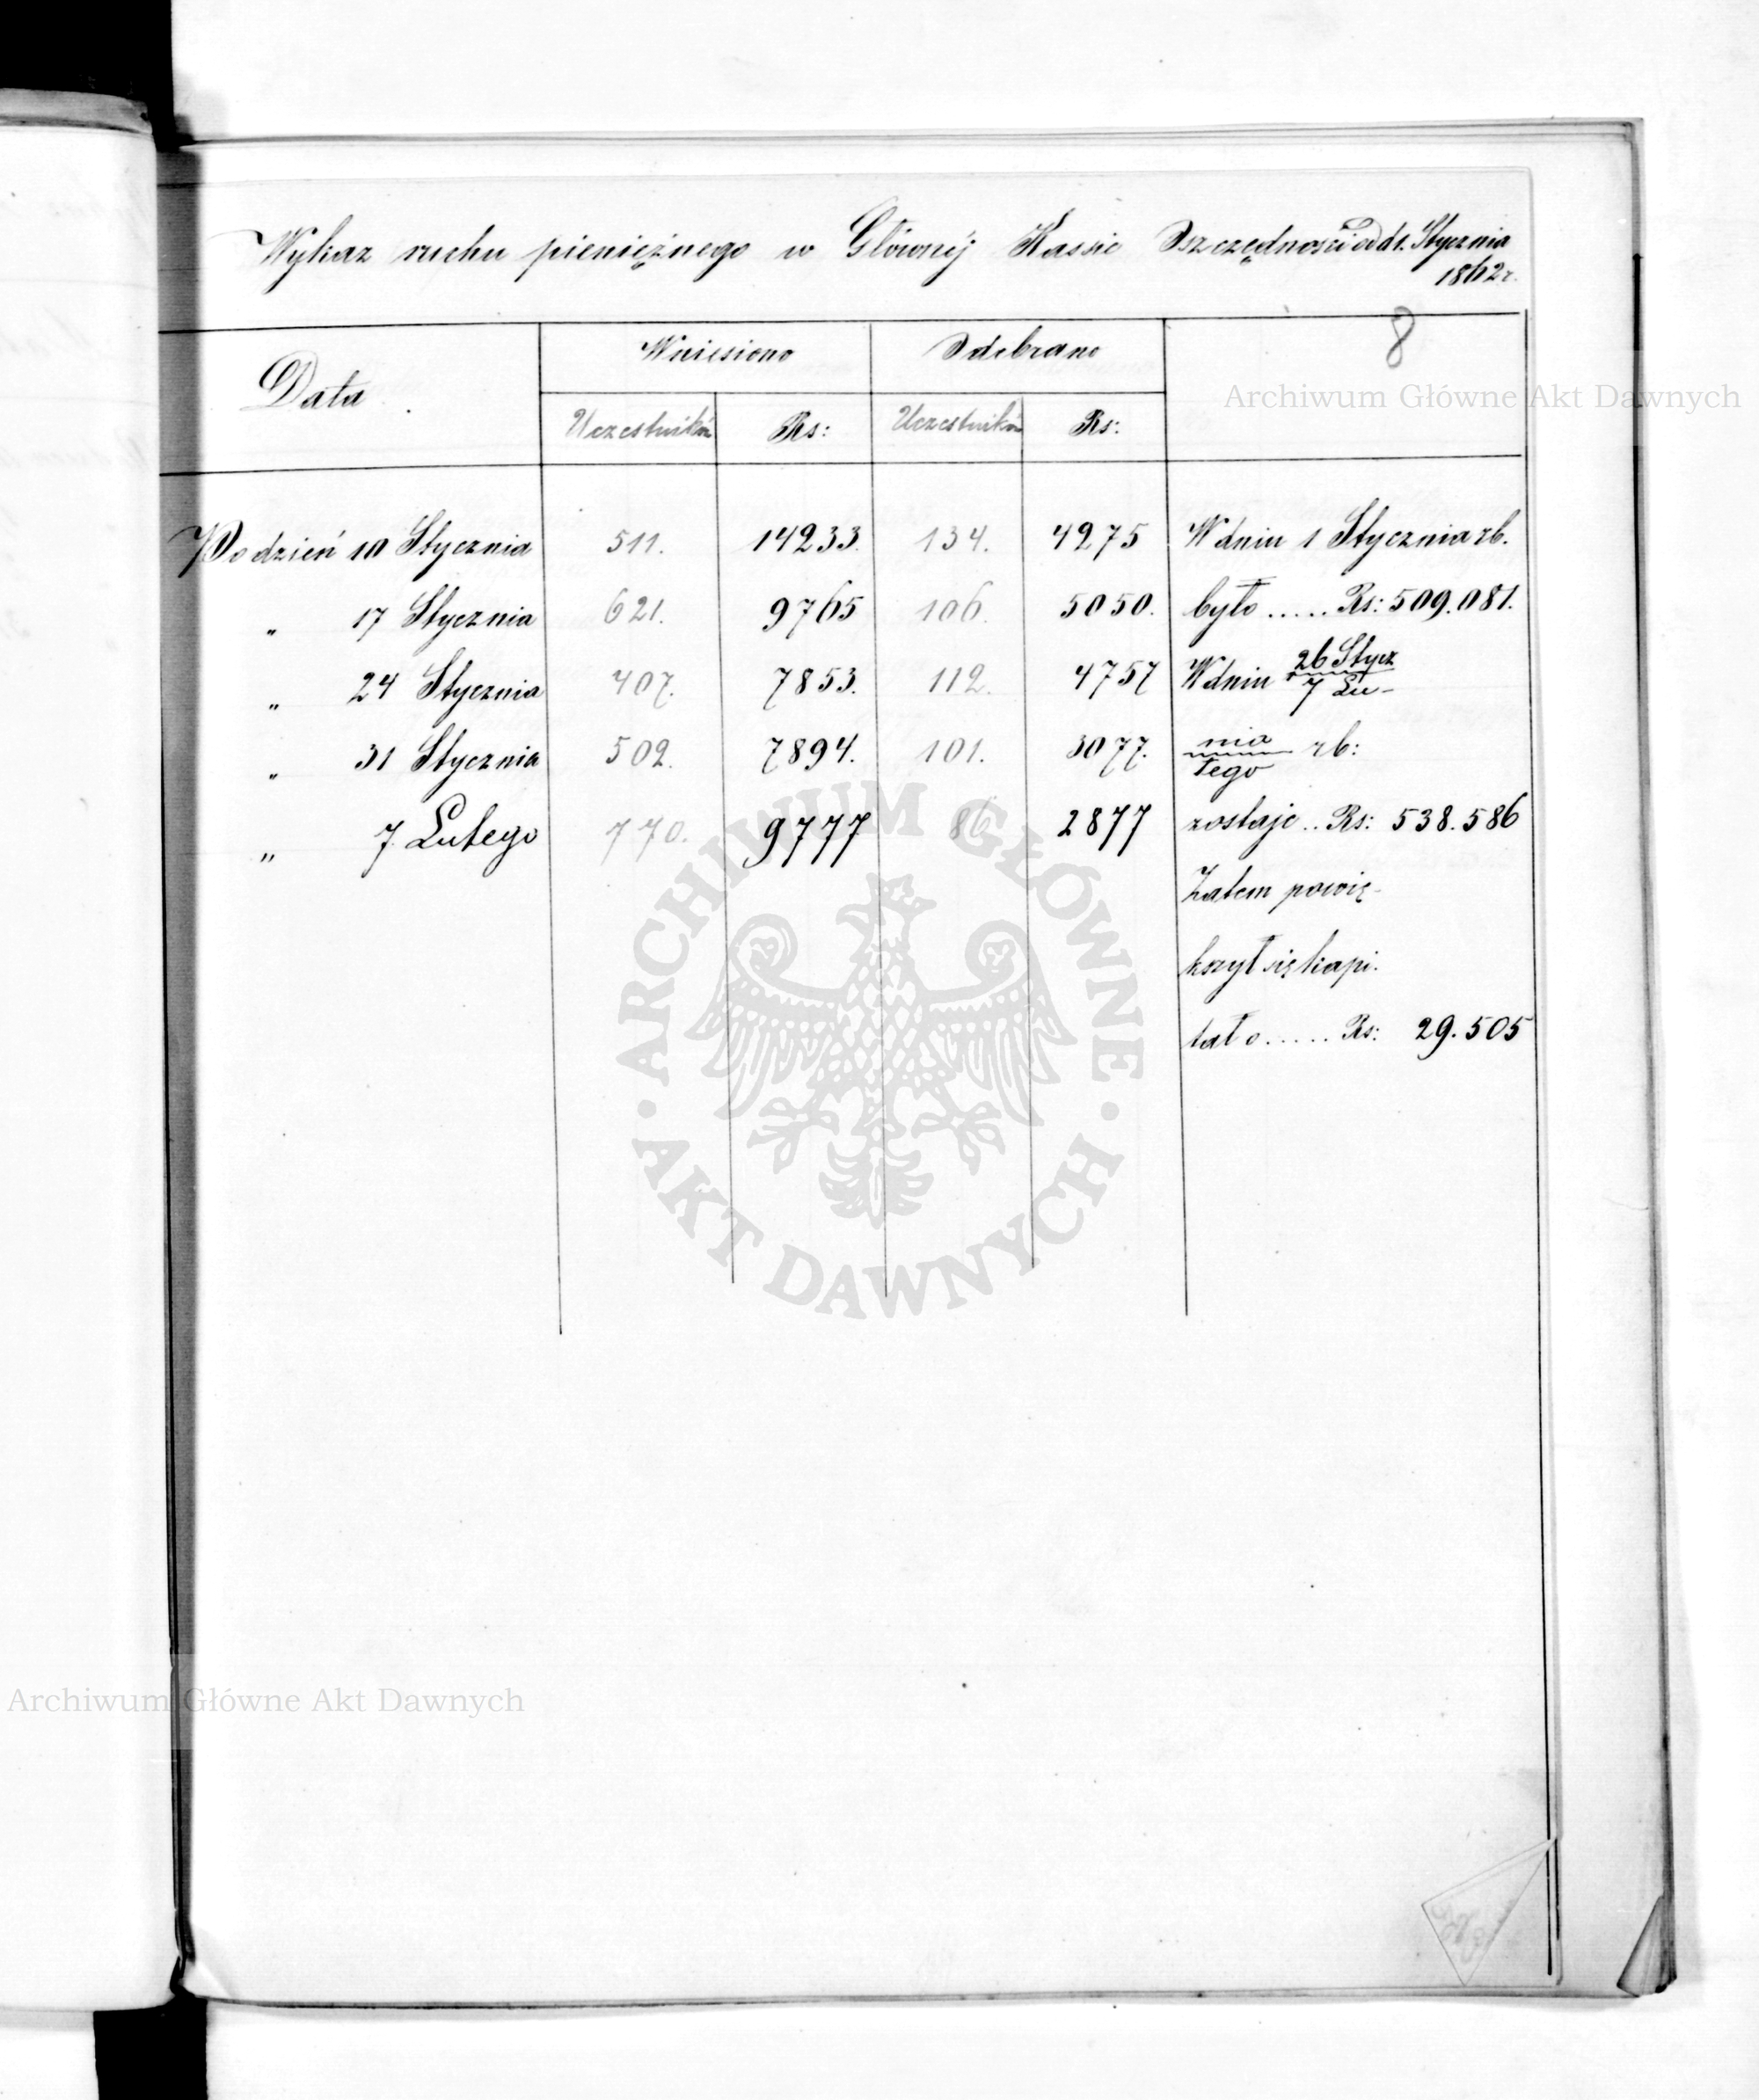 Wykaz ruchu pieniężnego w Głównéj Kassie Oszczędności od 1. Stycznia
1862 r.
8
Data
Wniesiono
Odebrano
Uczestników
Rs:
Uczestników
Rs:
Po dzień 10 Stycznia 511. 14233. 134. 4275 W dniu 1 Stycznia rb.
„ 17 Stycznia 621. 9765 106. 5050. było ..... Rs: 509.081.
„ 24 Stycznia 407. 7853. 112. 4757 W dniu 26 Stycz / 7 Lu-
„ 31 Stycznia 502. 7894. 101. 3077. nia / tego rb:
„ 7 Lutego 770. 9777 86 2877 zostaje .. Rs: 538.586
Zatem powię-
kszył się kapi.
tał o ..... Rs: 29.505
Archiwum Główne Akt Dawnych
ARCHIWUM GŁÓWNE
· AKT DAWNYCH ·
Archiwum Główne Akt Dawnych